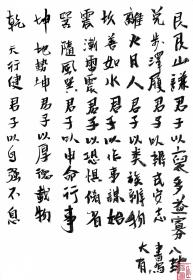 艮艮山謙君子以裒多益寡 八卦
兑步澤履君子以辯民安志
離火日人君子以類族辨物
坎善如水君子以作事謀始
震洊雷震君子以恐懼脩省
巽隨風巽君子以申命行事
坤地勢坤君子以厚德載物
乾天行健君子以自强不息
大有